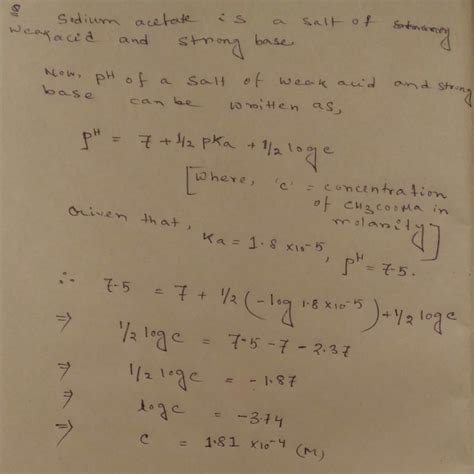 Sodium acetate is a salt of
weak acid and strong base.
Now, pH of a salt of weak acid and strong
base can be written as,
pH = 7 + 1/2 pKa + 1/2 log c
[Where, 'c' = concentration
of CH3COONa in
molarity]
Given that,
Ka = 1.8 × 10-5, pH = 7.5.
∴ 7.5 = 7 + 1/2 (-log 1.8 × 10-5) + 1/2 log c
⇒ 1/2 log c = 7.5 - 7 - 2.37
⇒ 1/2 log c = -1.87
⇒ log c = -3.74
⇒ c = 1.81 × 10-4 (M)